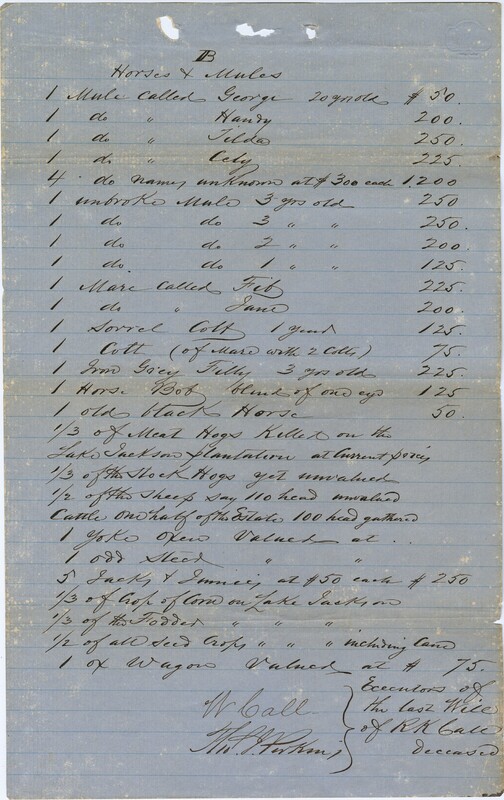 B
Horses & Mules
1 Mule Called George 20 yrs old $ 50.
1 do " Handy 200.
1 do " Tilda 250.
1 do " Cely 225.
4 do names unknown at $300 each 1,200
1 unbroke Mule 3 yrs old 250
1 do do 3 " " 250.
1 do do 2 " " 200.
1 do do 1 " " 125.
1 Mare Called Fib 225.
1 do " Jane 200.
1 Sorrel Colt 1 year 125.
1 Colt (of Mare with 2 Colts) 75.
1 Iron Grey Filly 3 yrs old 225.
1 Horse Bob blind of one eye 125
1 old black Horse 50.
1/3 of Meat Hogs Killed on the
Lake Jackson plantation at Current prices
1/3 of the Stock Hogs yet unvalued
1/2 of the Sheep say 110 head unvalued
Cattle One half of the Estate 100 head gathered
1 Yoke Oxen Valued at ..
1 odd Steer " "
5 Jacks & Jinnies at $50 each $ 250
1/3 of Crop of Corn on Lake Jackson
1/3 of the Fodder " " "
1/2 of all seed Crops " " " including Cane
1 ox Wagon Valued at $ 75.
W Call
Tho. J Perkins
Executors of
the last Will
of R K Call
deceased